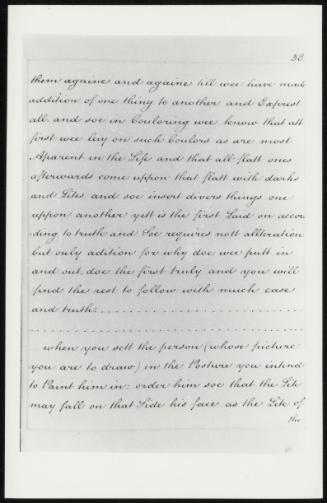 38.
them againe and againe till wee have made
addition of one thing to another and Exprest
all. and soe in Couloring wee know that att
first wee lay on such Coulors as are most
Aparent in the Life and that all flatt ones
afterwards come uppon that flatt with darks
and Lites and soe insert divers things one
uppon another yett is the first Laid on accor
ding to truth and Soe requires nott allteration
but only adition for why doe wee putt in
and out, doe the first truly and you will
find the rest to follow with much ease
and truth.
when you sett the person (whose picture
you are to draw) in the Posture you intend
to Paint him in: order him soe that the Lite
may fall on that Side his face as the Lite of
the